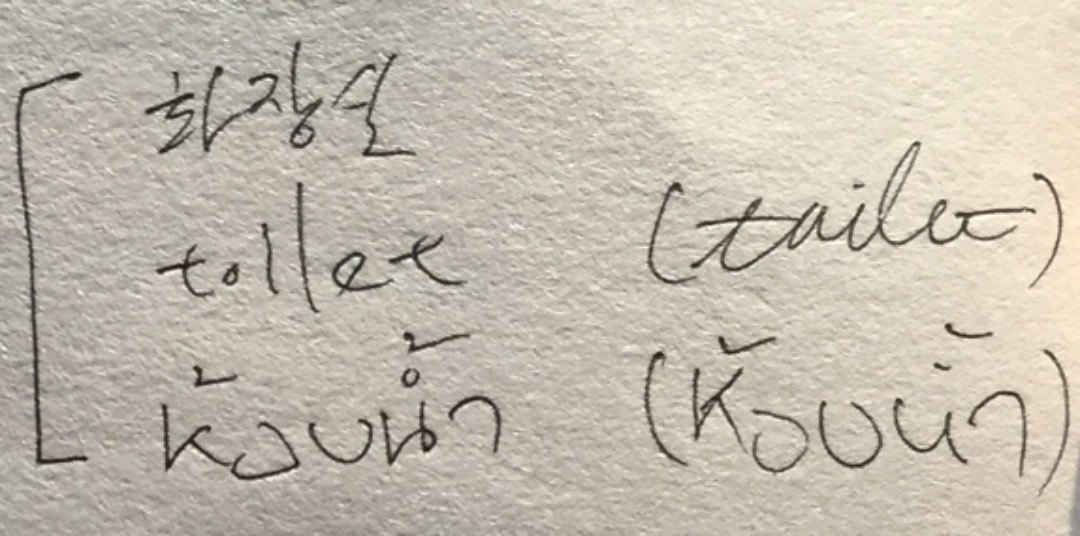 화장실
toilet (toilet)
ห้องน้ำ (ห้องน้ำ)